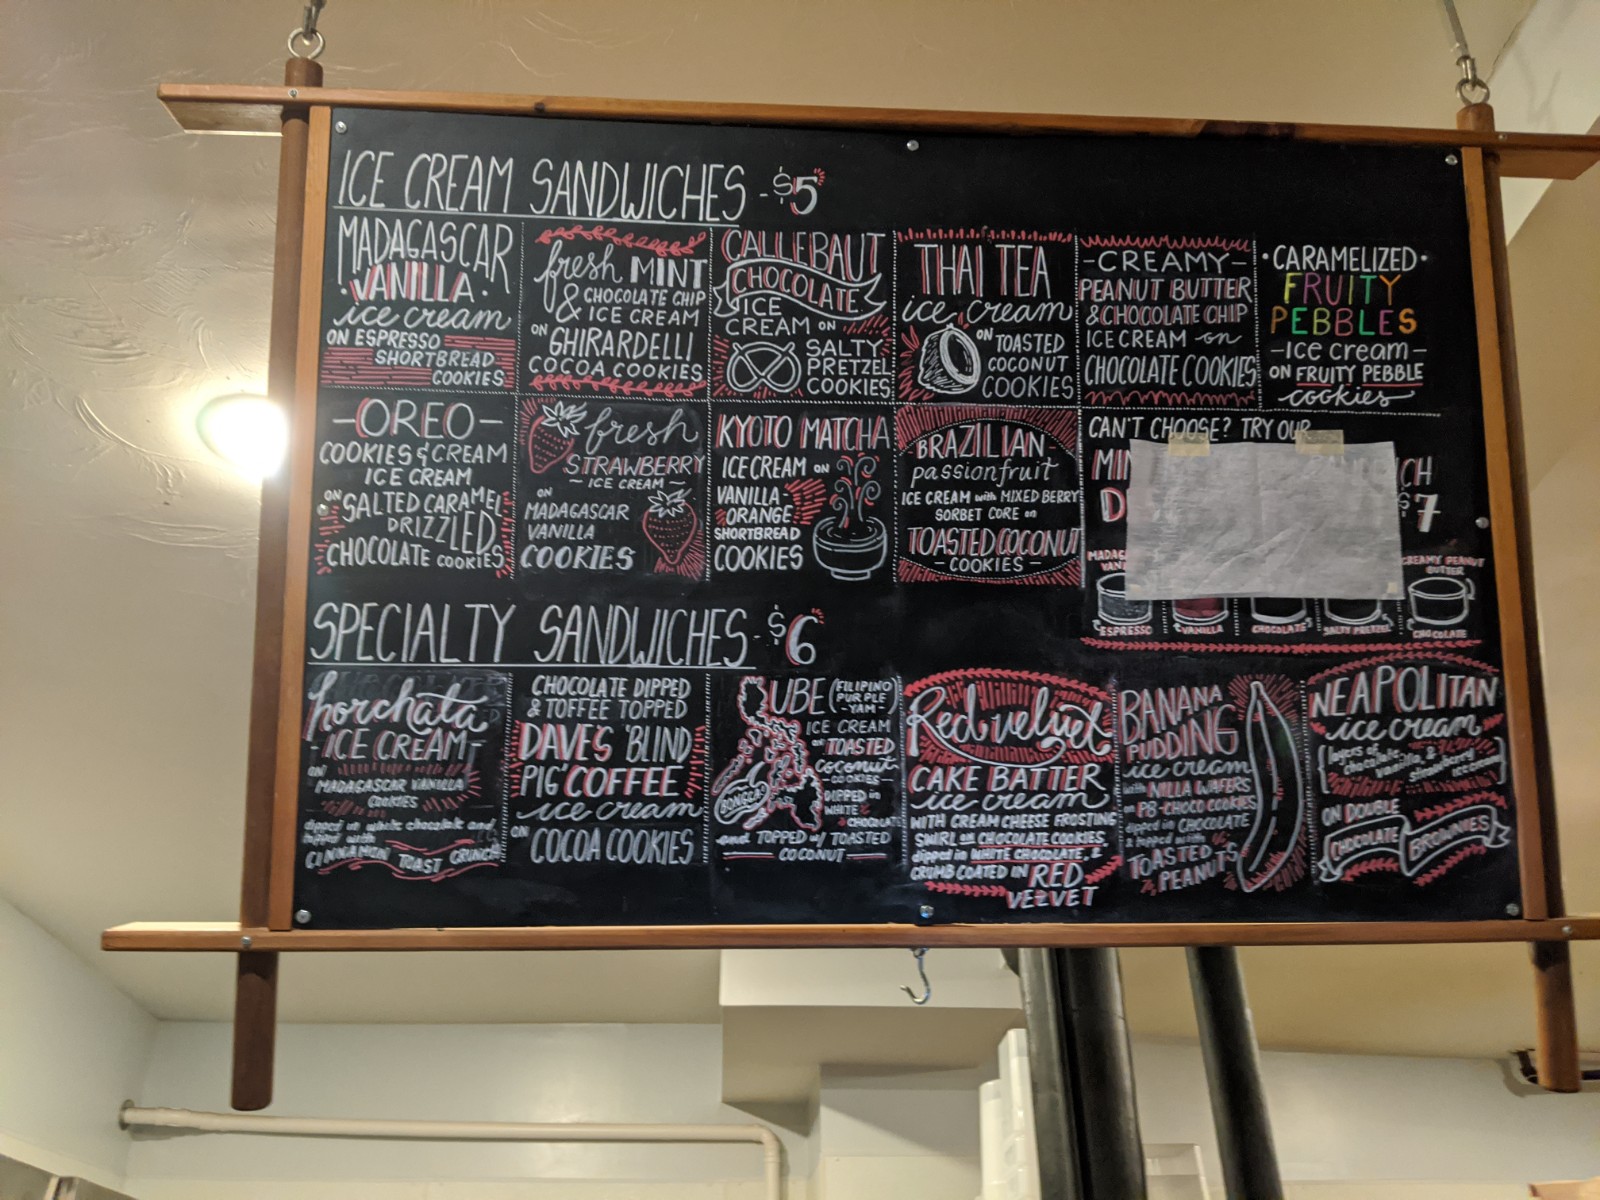 ICE CREAM SANDWICHES - $5
MADAGASCAR
VANILLA
ice cream
ON ESPRESSO
SHORTBREAD
COOKIES
fresh MINT
& CHOCOLATE CHIP
ICE CREAM
ON
GHIRARDELLI
COCOA COOKIES
CALLEBAUT
CHOCOLATE
ICE
CREAM ON
SALTY
PRETZEL
COOKIES
THAI TEA
ice cream
ON TOASTED
COCONUT
COOKIES
-CREAMY-
PEANUT BUTTER
& CHOCOLATE CHIP
ICE CREAM on
CHOCOLATE COOKIES
•CARAMELIZED•
FRUITY
PEBBLES
-ice cream-
ON FRUITY PEBBLE
cookies
-OREO-
COOKIES & CREAM
ICE CREAM
ON SALTED CARAMEL
DRIZZLED
CHOCOLATE COOKIES
fresh
STRAWBERRY
~ ICE CREAM ~
ON
MADAGASCAR
VANILLA
COOKIES
KYOTO MATCHA
ICE CREAM ON
VANILLA-
ORANGE
SHORTBREAD
COOKIES
BRAZILIAN
passionfruit
ICE CREAM with MIXED BERRY
SORBET CORE on
TOASTED COCONUT
- COOKIES -
CAN'T CHOOSE? TRY OUR
MIN
CH
D
$7
MADAG
VAN
CREAMY PEANUT
BUTTER
ESPRESSO
VANILLA
CHOCOLATE
SALTY PRETZEL
CHOCOLATE
SPECIALTY SANDWICHES - $6
horchata
-ICE CREAM-
ON
MADAGASCAR VANILLA
COOKIES
dipped in white chocolate and
topped with
CINNAMON TOAST CRUNCH
CHOCOLATE DIPPED
& TOFFEE TOPPED
DAVE'S 'BLIND
PIG' COFFEE
ice cream
ON
COCOA COOKIES
UBE (FILIPINO
PURPLE
-YAM-)
ICE CREAM
on TOASTED
coconut
-COOKIES-
DIPPED in
WHITE
CHOCOLATE
and TOPPED w/ TOASTED
COCONUT
Red velvet
CAKE BATTER
ice cream
WITH CREAM CHEESE FROSTING
SWIRL on CHOCOLATE COOKIES,
dipped in WHITE CHOCOLATE, &
CRUMB COATED IN RED
VELVET
BANANA
PUDDING
ice cream
with NILLA WAFERS
on PB-CHOCO COOKIES
dipped in CHOCOLATE
& topped with
TOASTED
PEANUTS
NEAPOLITAN
ice cream
(layers of
chocolate,
vanilla, &
strawberry
ice cream)
ON DOUBLE
CHOCOLATE
BROWNIES